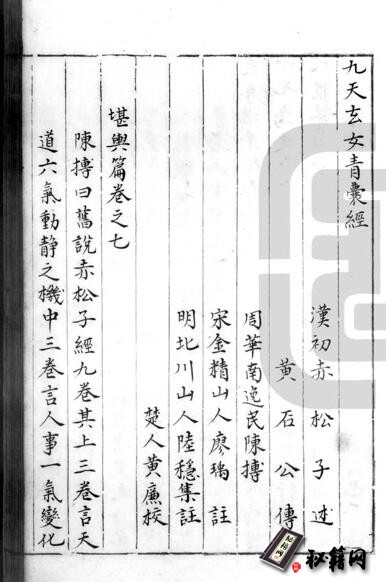 九天玄女青囊經
漢初赤松子述
黃石公傳
周華南逸民陳摶
宋金精山人廖瑀註
明北川山人陸穩集註
楚人黃㢘校
堪輿篇卷之七
陳摶曰舊說赤松子經九卷其上三卷言天
道六氣動靜之機中三卷言人事一氣變化
秘籍网